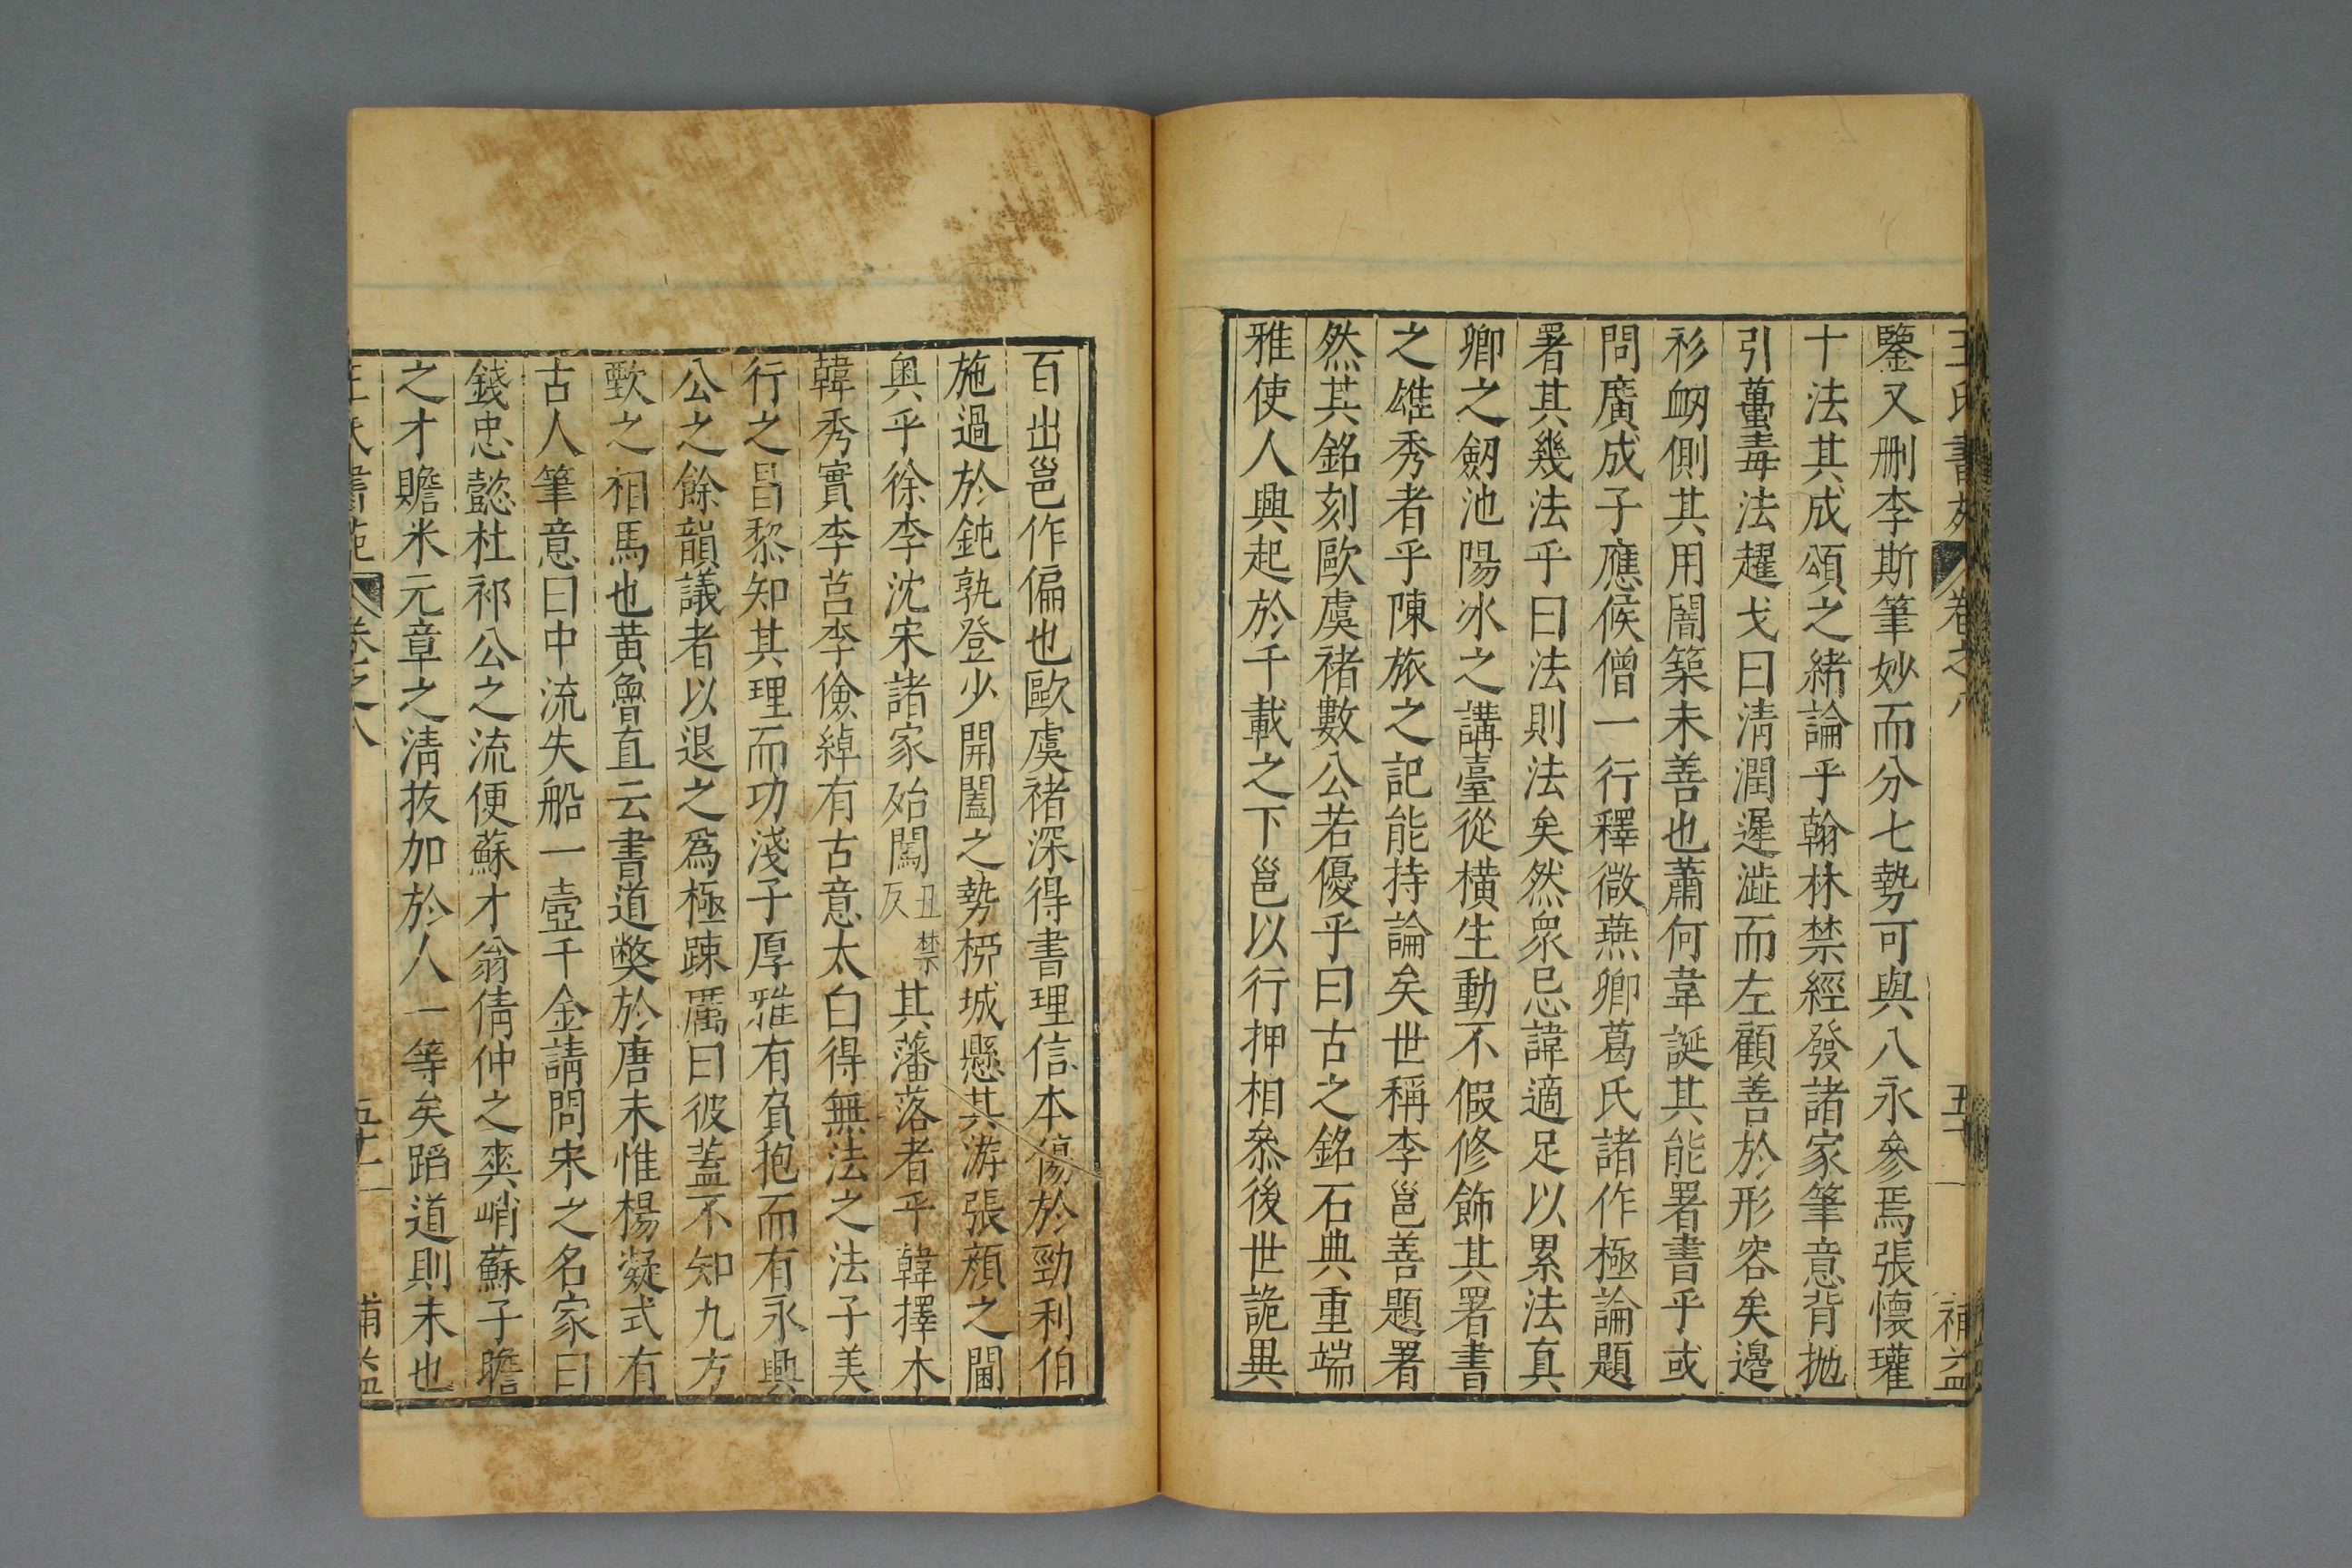 王氏書苑 卷之八 五十一 補益
鑒又刪李斯筆妙而分七勢可與八永參焉張懷瓘
十法其成頌之緒論乎翰林禁經發諸家筆意背拋
引蠆毒法趯戈曰淸潤遲澁而左顧善於形容矣邉
衫衂側其用闇築未善也蕭何韋誕其能署書乎或
問廣成子應候僧一行釋微燕卿葛氏諸作極論題
署其幾法乎曰法則法矣然衆忌諱適足以累法真
卿之劒池陽冰之講臺從横生動不假修飾其署書
之雄秀者乎陳旅之記能持論矣世稱李邕善題署
然其銘刻歐虞褚數公若優乎曰古之銘石典重端
雅使人興起於千載之下邕以行押相叅後世詭異
百出邕作偏也歐虞褚深得書理信本傷於勁利伯
施過於鈍孰登少開闔之勢栁城懸其游張顔之閫
奥乎徐李沈宋諸家殆闖丑禁反其藩落者乎韓擇木
韓秀實李莒李儉綽有古意太白得無法之法子美
行之昌黎知其理而功淺子厚雅有負抱而有永興
公之餘韻議者以退之爲極踈厲曰彼蓋不知九方
歅之相馬也黄魯直云書道弊於唐末惟楊凝式有
古人筆意曰中流失船一壺千金請問宋之名家曰
錢忠懿杜祁公之流便蘇才翁倩仲之爽峭蘇子瞻
之才贍米元章之淸拔加於人一等矣蹈道則未也
王氏書苑 卷之八 五十二 補益